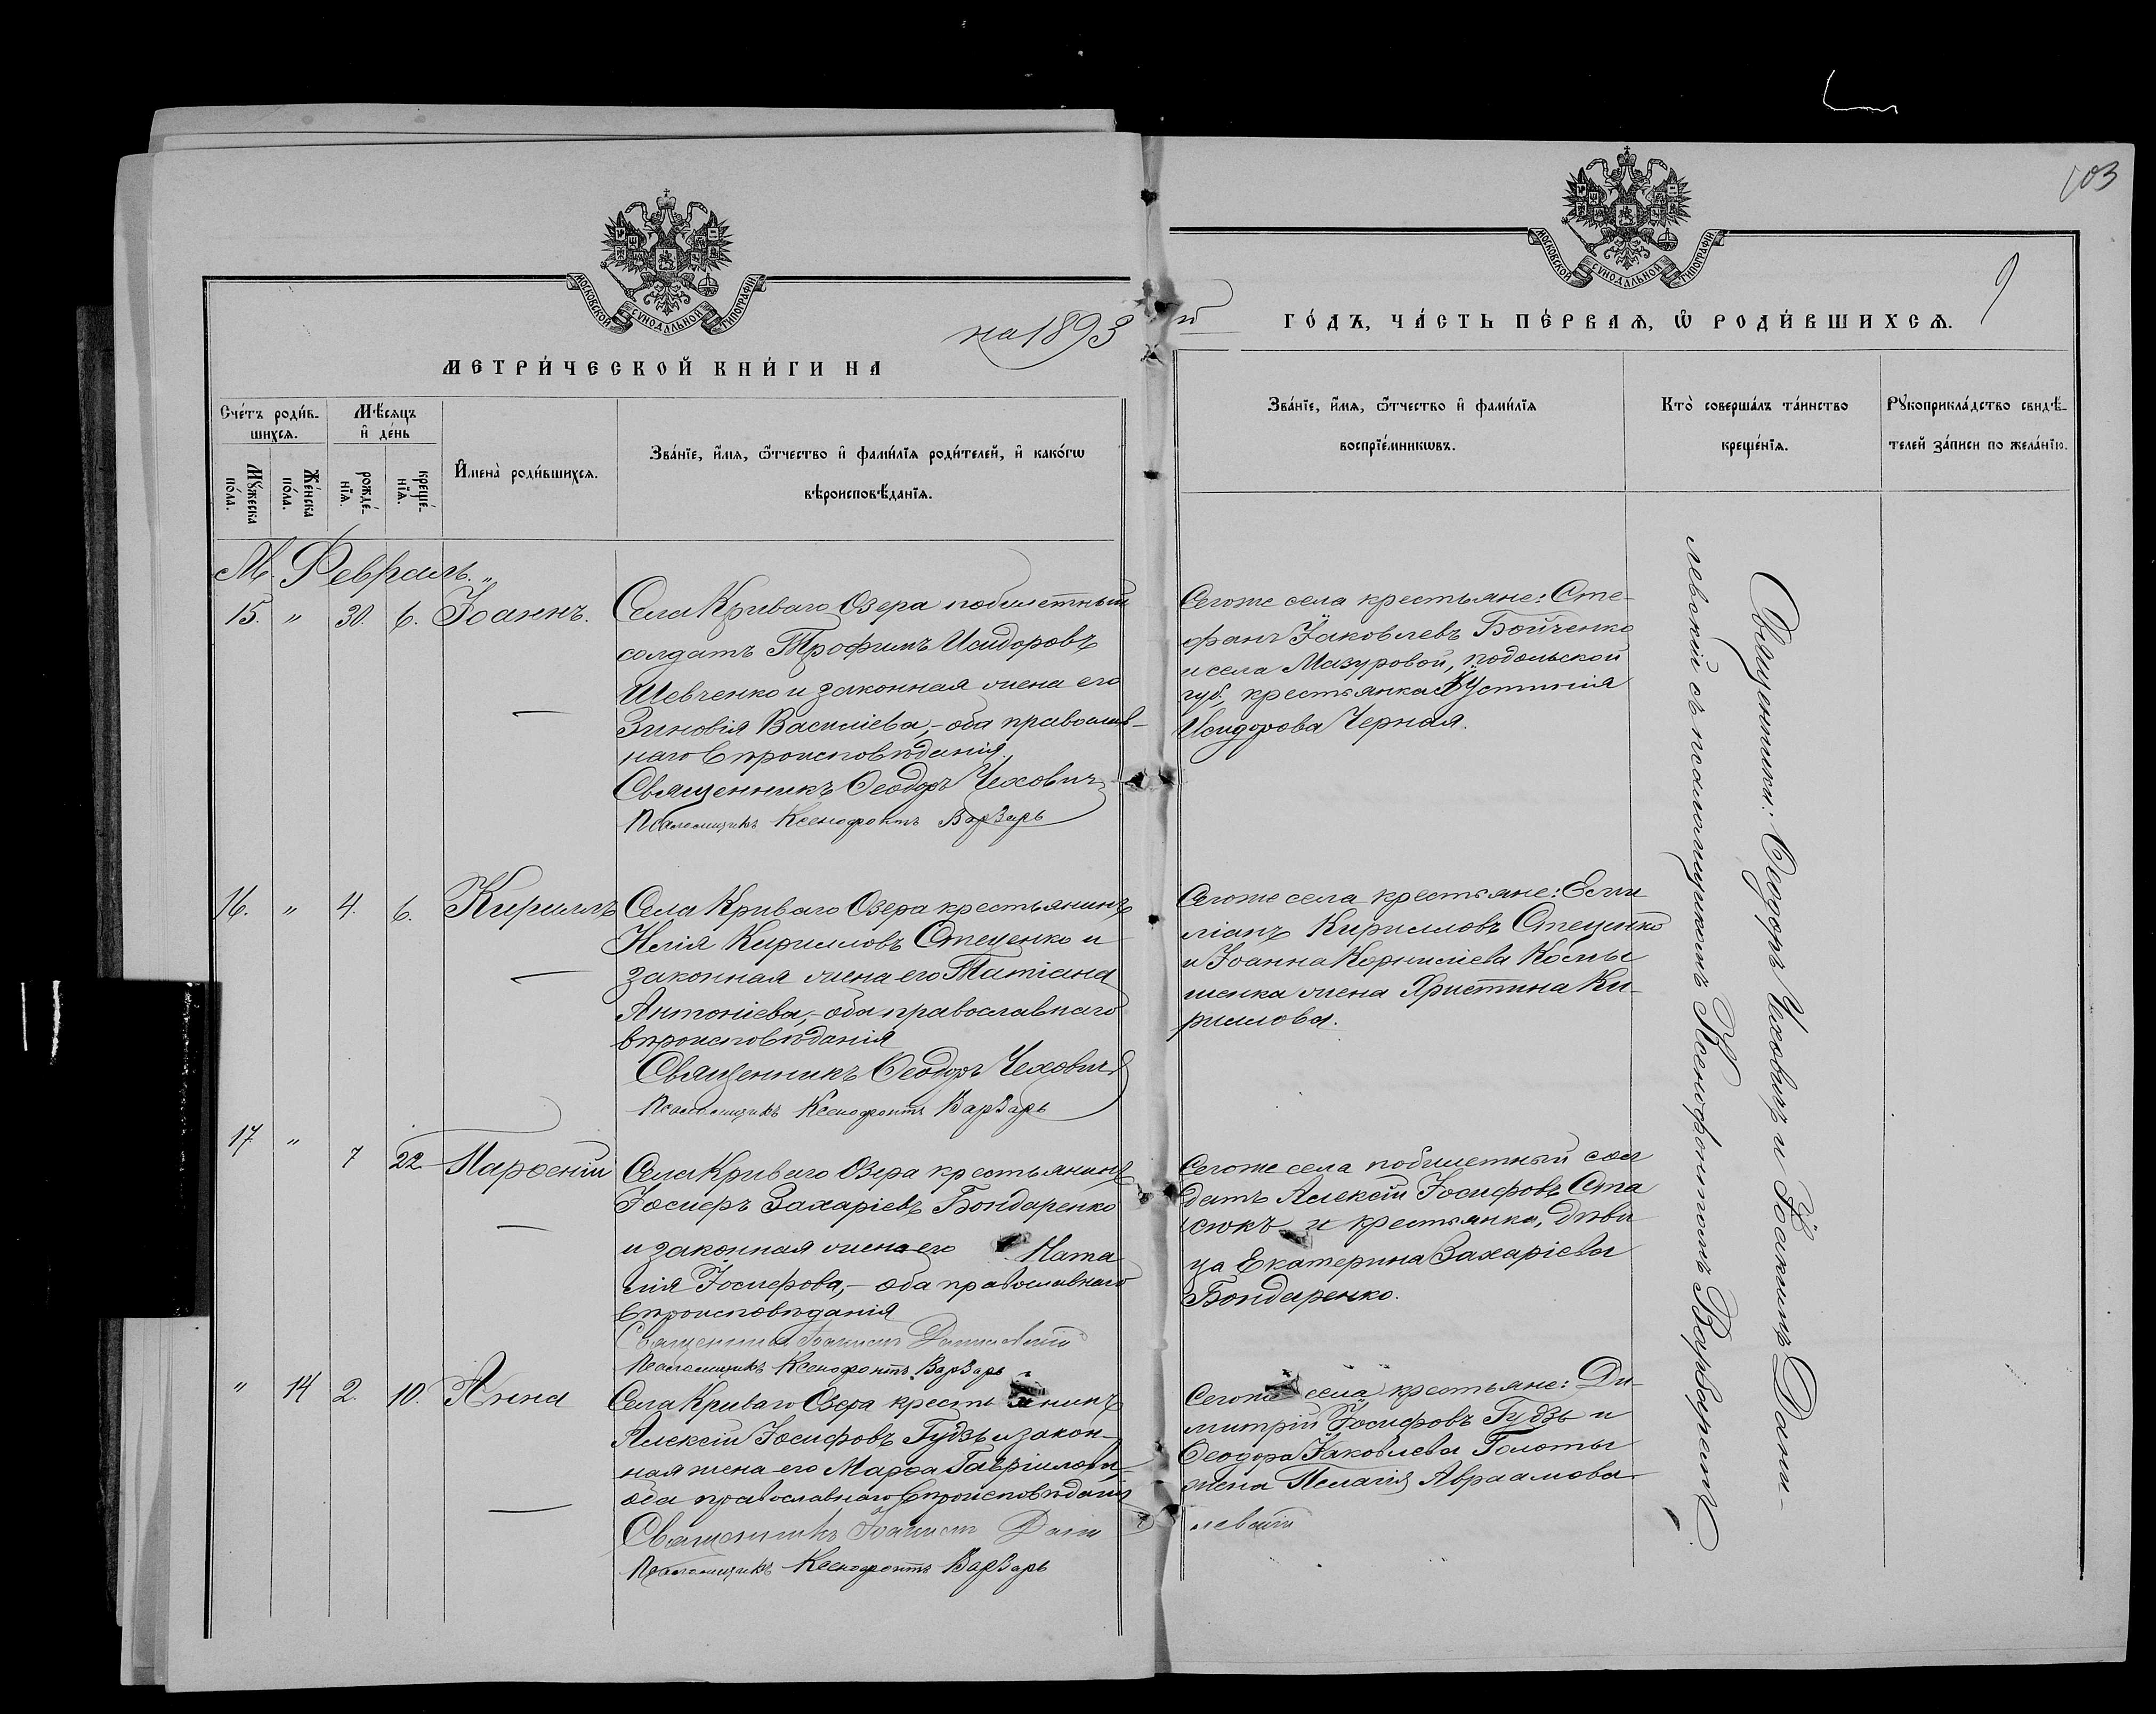 103
МОСКОВСКОЙ СУНОДАЛЬНОЙ ТИПОГРАФІИ
МОСКОВСКОЙ СУНОДАЛЬНОЙ ТИПОГРАФІИ
МЕТРИ́ЧЕСКОЙ КНИ́ГИ НА на 1893 й ГО́ДЪ, ЧА́СТЬ ПЕ́РВАѦ, Ѡ҆ РОДИ́ВШИХСѦ.
Сче́тъ роди́в-
шихсѧ.
Мѣ́сѧцъ
и҆ де́нь
Мꙋ́жеска
по́ла.
Же́нска
по́ла.
рожде́-
нїѧ.
креще́-
нїѧ.
И҆мена̀ роди́вшихсѧ.
Зва́нїе, и҆́мѧ, ѻ҆́тчество и҆ фами́лїѧ роди́телей, и҆ како́гѡ
вѣроисповѣ́данїѧ.
Зва́нїе, и҆́мѧ, ѻ҆́тчество и҆ фами́лїѧ
воспрїе́мникѡвъ.
Кто̀ соверша́лъ та́инство
креще́нїѧ.
Рꙋкоприкла́дство свидѣ́-
телей за́писи по жела́нїю.
М. Февраль. "
15. " 30. 6. Іоаннъ.
Села Криваго Озера побилетный
солдатъ Трофимъ Исидоровъ
Шевченко и законная жена его
Зиновія Василіева,- оба православ-
наго вѣроисповѣданія
Священникъ Ѳеодоръ Чехович
Псаломщикъ Ксенофонтъ Варзарь
Сегоже села крестьяне: Сте-
фанъ Іаковлевъ Бойченко
и села Мазуровой, подольской
губ., крестьянка Устинія
Исидорова Черная.
16. " 4. 6. Кириллъ
Села Криваго Озера крестьянинъ
Илія Кирилловъ Стеценко и
законная жена его Татіана
Антоніева,- оба православнаго
вѣроисповѣданія
Священникъ Ѳеодоръ Чехович
Псаломщикъ Ксенофонтъ Варзарь
Сегоже села крестьяне: Еми
ліанъ Кирилловъ Стеценко
и Іоанна Корниліева Косты
шенка жена Христина Ки-
риллова.
17. " 7 22 Парѳеній
Села Криваго Озера крестьянинъ
Іосифъ Захаріевъ Бондаренко
и законная жена его Ната
лія Іосифова,- оба православнаго
вѣроисповѣданія
Священникъ Іоакимъ Данилевскій
Псаломщикъ Ксенофонтъ Варзарь
Сегоже села побилетный сол
датъ Алексій Іосифовъ Ста
сюкъ и крестьянка, дѣви
ца Екатерина Захаріева
Бондаренко.
" 14 2. 10. Анна
Села Криваго Озера крестьянинъ
Алексій Іосифовъ Гудзь и закон-
ная жена его Марѳа Гавріилова,
оба православнаго вѣроисповѣданія
Священникъ Іоакимъ Дани
левскій
Псаломщикъ Ксенофонтъ Варзарь
Сегоже села крестьяне: Ди-
митрій Іосифовъ Гудзь и
Ѳеодора Іаковлева Голоты
жена Пелагія Авраамова
Священники: Ѳеодоръ Чеховичъ и Іоакимъ Дани-
левскій съ псаломщикомъ Ксенофонтомъ Варзаремъ